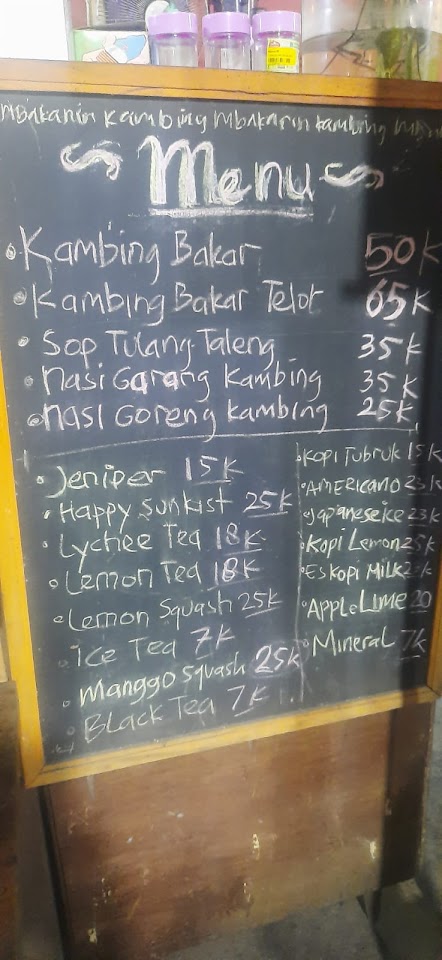 mbakarin kambing mbakarin kambing
Menu
Kambing Bakar 50K
Kambing Bakar Telot 65K
Sop Tulang Taleng 35K
Nasi Garang Kambing 35K
Nasi Goreng Kambing 25K
Jeniper 15K
Happy Sunkist 25K
Lychee Tea 18K
Lemon Tea 18K
Lemon Squash 25K
Ice Tea 7K
Manggo Squash 25K
Black Tea 7K
Kopi Tubruk 15K
Americano 23K
Japanese ice 23K
Kopi Lemon 25K
Es Kopi Milk
Apple Lime 20
Mineral 7K